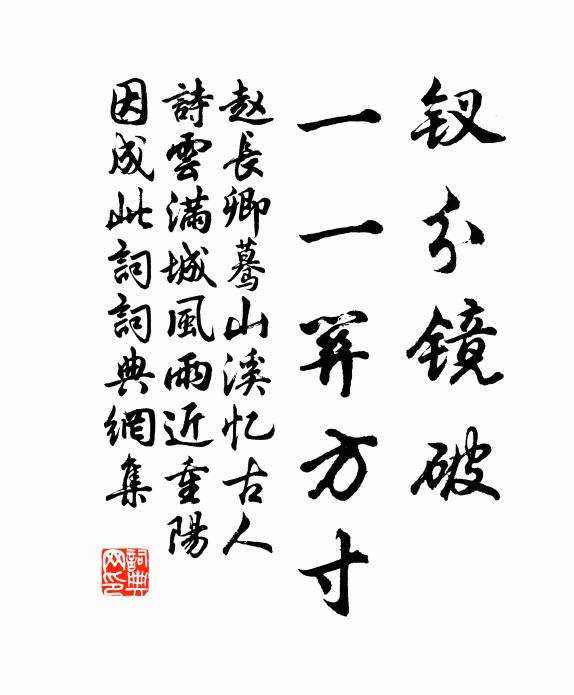 钗分镜破
一一關方寸
赵長卿驀山溪忆古人
詩雲滿城風雨近重陽
因成此詞詞典網集
詞典网印